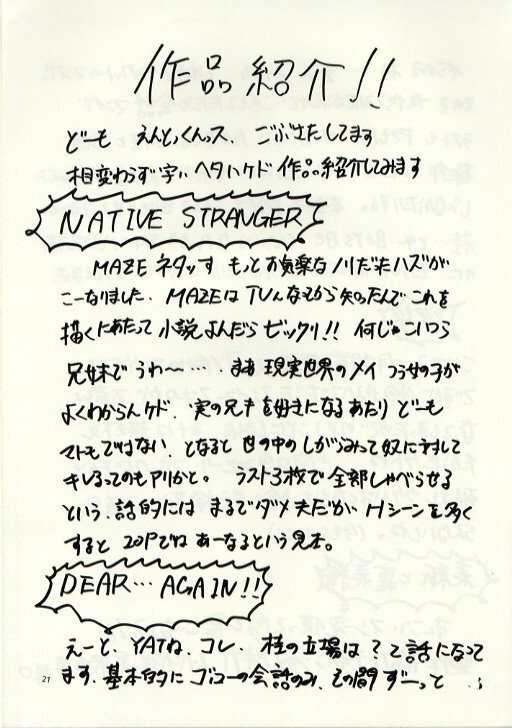 作品紹介!!
どーも えんどくんっス、ごぶさたしてます
相変わらず字、ヘタいケド作品紹介してみます
NATIVE STRANGER
MAZEネタっす もっとお気楽なノリだったハズが
こーなりました、MAZEはTVんなもから知ったんでこれを
描くにあたって小説よんだらビックリ!! 何じゃこいつら
兄妹でうわ～…、まあ現実世界のメイつう女の子が
よくわからんケド、実の兄キを好きになるあたりどーも
マトモではない、となると世の中のしがらみって奴に対して
キレるってのもアリかと。 ラスト3枚で全部しゃべらせる
という、話的にはまるでダメ夫だが、Hシーンを多く
すると20Pでは あーなるという見本。
DEAR… AGAIN!!
えーと、YATね、コレ、桂の立場は?って話になって
ます、基本的にゴローの会話のみ、その間ずーっと
21